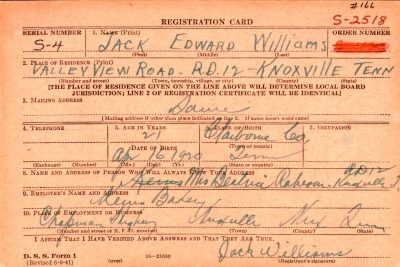 #166
REGISTRATION CARD
S-2518
SERIAL NUMBER
1. NAME (Print)
ORDER NUMBER
S-4
JACK EDWARD WILLIAMS
(First) (Middle) (Last)
2. PLACE OF RESIDENCE (Print)
VALLEY VIEW ROAD - RD 12 - KNOXVILLE TENN
(Number and street) (Town, township, village, or city) (County) (State)
[THE PLACE OF RESIDENCE GIVEN ON THE LINE ABOVE WILL DETERMINE LOCAL BOARD
JURISDICTION; LINE 2 OF REGISTRATION CERTIFICATE WILL BE IDENTICAL]
3. MAILING ADDRESS
Same
[Mailing address if other than place indicated on line 2. If same insert word same]
4. TELEPHONE
5. AGE IN YEARS
6. PLACE OF BIRTH
7. OCCUPATION
21
Claiborne Co
DATE OF BIRTH
(Town or county)
Apr 16 1920
Tenn
(Exchange) (Number)
(Mo.) (Day) (Yr.)
(State or country)
8. NAME AND ADDRESS OF PERSON WHO WILL ALWAYS KNOW YOUR ADDRESS
RD 12
Mrs Beatrice
Knoxville T.
9. EMPLOYER'S NAME AND ADDRESS
Kerns Bakery
10. PLACE OF EMPLOYMENT OR BUSINESS
Chapman Highway Knoxville Knox Tenn
(Number and street or R. F. D. number) (Town) (County) (State)
I AFFIRM THAT I HAVE VERIFIED ABOVE ANSWERS AND THAT THEY ARE TRUE.
D. S. S. Form 1
(Revised 6-9-41)
16-21630
Jack Williams